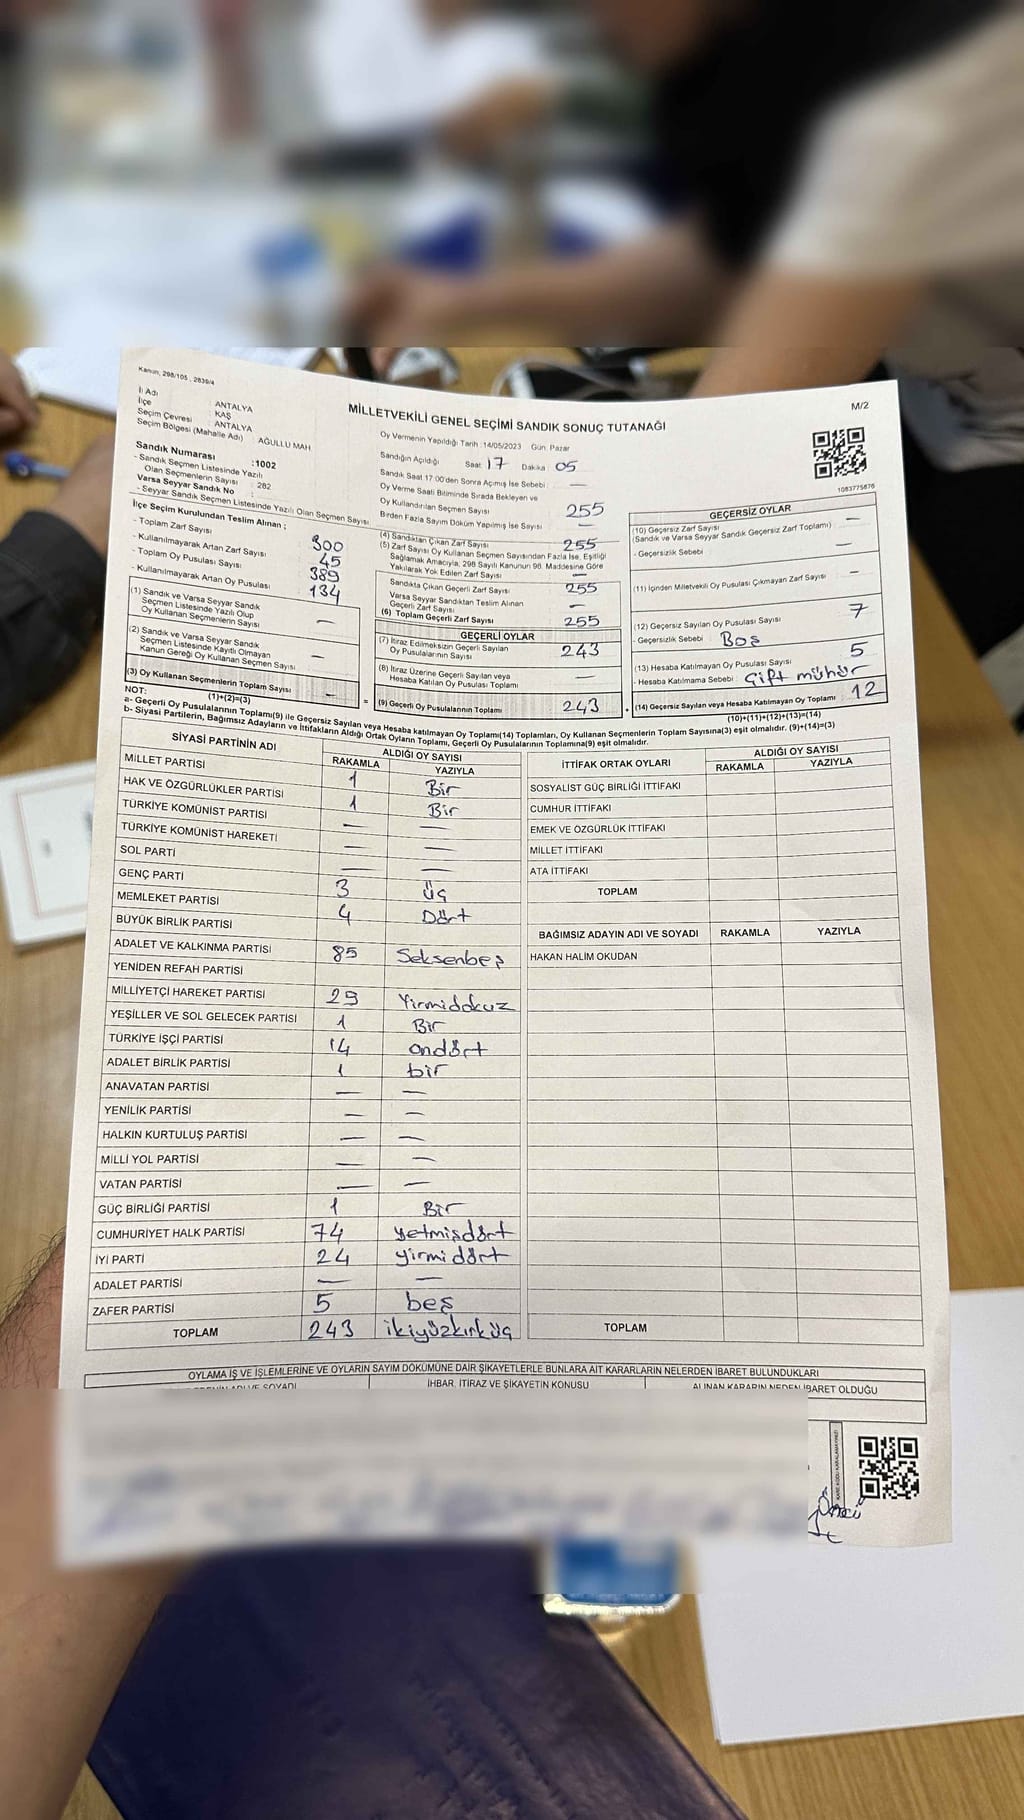 Kanun, 298/105 , 2839/4
M/2
MİLLETVEKİLİ GENEL SEÇİMİ SANDIK SONUÇ TUTANAĞI
İl Adı : ANTALYA
İlçe : KAŞ
Seçim Çevresi : ANTALYA
Seçim Bölgesi (Mahalle Adı) : AĞULLU MAH
Sandık Numarası :1002
- Sandık Seçmen Listesinde Yazılı
Olan Seçmenlerin Sayısı : 282
Varsa Seyyar Sandık No :
- Seyyar Sandık Seçmen Listesinde Yazılı Olan Seçmen Sayısı
Oy Vermenin Yapıldığı Tarih :14/05/2023 Gün: Pazar
Sandığın Açıldığı Saat: 17 Dakika: 05
Sandık Saat 17:00'den Sonra Açılmış İse Sebebi : —
Oy Verme Saati Bitiminde Sırada Bekleyen ve
Oy Kullandırılan Seçmen Sayısı 255
Birden Fazla Sayım Döküm Yapılmış İse Sayısı —
1083775876
İlçe Seçim Kurulundan Teslim Alınan ;
- Toplam Zarf Sayısı 300
- Kullanılmayarak Artan Zarf Sayısı 45
- Toplam Oy Pusulası Sayısı 389
- Kullanılmayarak Artan Oy Pusulası 134
(1) Sandık ve Varsa Seyyar Sandık
Seçmen Listesinde Yazılı Olup
Oy Kullanan Seçmenlerin Sayısı —
(2) Sandık ve Varsa Seyyar Sandık
Seçmen Listesinde Kayıtlı Olmayan
Kanun Gereği Oy Kullanan Seçmen Sayısı —
(3) Oy Kullanan Seçmenlerin Toplam Sayısı —
(1)+(2)=(3)
(4) Sandıktan Çıkan Zarf Sayısı 255
(5) Zarf Sayısı Oy Kullanan Seçmen Sayısından Fazla İse, Eşitliği
Sağlamak Amacıyla; 298 Sayılı Kanunun 98. Maddesine Göre
Yakılarak Yok Edilen Zarf Sayısı —
Sandıkta Çıkan Geçerli Zarf Sayısı 255
Varsa Seyyar Sandıktan Teslim Alınan
Geçerli Zarf Sayısı —
(6) Toplam Geçerli Zarf Sayısı 255
GEÇERLİ OYLAR
(7) İtiraz Edilmeksizin Geçerli Sayılan
Oy Pusulalarının Sayısı 243
(8) İtiraz Üzerine Geçerli Sayılan veya
Hesaba Katılan Oy Pusulası Toplamı —
= (9) Geçerli Oy Pusulalarının Toplamı 243 +
GEÇERSİZ OYLAR
(10) Geçersiz Zarf Sayısı
(Sandık ve Varsa Seyyar Sandık Geçersiz Zarf Toplamı) —
- Geçersizlik Sebebi —
(11) İçinden Milletvekili Oy Pusulası Çıkmayan Zarf Sayısı —
(12) Geçersiz Sayılan Oy Pusulası Sayısı 7
- Geçersizlik Sebebi : Boş
(13) Hesaba Katılmayan Oy Pusulası Sayısı 5
- Hesaba Katılmama Sebebi : Çift mühür
(14) Geçersiz Sayılan veya Hesaba Katılmayan Oy Toplamı 12
(10)+(11)+(12)+(13)=(14)
NOT:
a- Geçerli Oy Pusulalarının Toplamı(9) ile Geçersiz Sayılan veya Hesaba katılmayan Oy Toplamı(14) Toplamları, Oy Kullanan Seçmenlerin Toplam Sayısına(3) eşit olmalıdır. (9)+(14)=(3)
b- Siyasi Partilerin, Bağımsız Adayların ve İttifakların Aldığı Ortak Oyların Toplamı, Geçerli Oy Pusulalarının Toplamına(9) eşit olmalıdır.
SİYASİ PARTİNİN ADI ALDIĞI OY SAYISI
RAKAMLA YAZIYLA
MİLLET PARTİSİ 1 Bir
HAK VE ÖZGÜRLÜKLER PARTİSİ 1 Bir
TÜRKİYE KOMÜNİST PARTİSİ — —
TÜRKİYE KOMÜNİST HAREKETİ — —
SOL PARTİ — —
GENÇ PARTİ 3 üç
MEMLEKET PARTİSİ 4 Dört
BÜYÜK BİRLİK PARTİSİ
ADALET VE KALKINMA PARTİSİ 85 Seksenbeş
YENİDEN REFAH PARTİSİ
MİLLİYETÇİ HAREKET PARTİSİ 29 Yirmidokuz
YEŞİLLER VE SOL GELECEK PARTİSİ 1 Bir
TÜRKİYE İŞÇİ PARTİSİ 14 ondört
ADALET BİRLİK PARTİSİ 1 bir
ANAVATAN PARTİSİ — —
YENİLİK PARTİSİ — —
HALKIN KURTULUŞ PARTİSİ — —
MİLLİ YOL PARTİSİ — —
VATAN PARTİSİ — —
GÜÇ BİRLİĞİ PARTİSİ 1 Bir
CUMHURİYET HALK PARTİSİ 74 yetmişdört
İYİ PARTİ 24 yirmidört
ADALET PARTİSİ — —
ZAFER PARTİSİ 5 beş
TOPLAM 243 ikiyüzkırküç
İTTİFAK ORTAK OYLARI ALDIĞI OY SAYISI
RAKAMLA YAZIYLA
SOSYALİST GÜÇ BİRLİĞİ İTTİFAKI
CUMHUR İTTİFAKI
EMEK VE ÖZGÜRLÜK İTTİFAKI
MİLLET İTTİFAKI
ATA İTTİFAKI
TOPLAM
BAĞIMSIZ ADAYIN ADI VE SOYADI RAKAMLA YAZIYLA
HAKAN HALİM OKUDAN
TOPLAM
OYLAMA İŞ VE İŞLEMLERİNE VE OYLARIN SAYIM DÖKÜMÜNE DAİR ŞİKAYETLERLE BUNLARA AİT KARARLARIN NELERDEN İBARET BULUNDUKLARI
ADI VE SOYADI İHBAR, İTİRAZ VE ŞİKAYETİN KONUSU ALINAN KARARIN NEDEN İBARET OLDUĞU